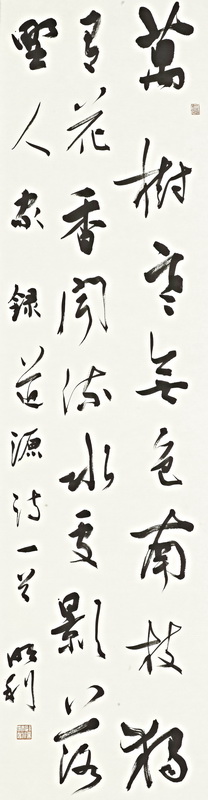 萬樹寒無色南枝獨
有花香聞流水處影落
野人家錄道源詩一首 明利